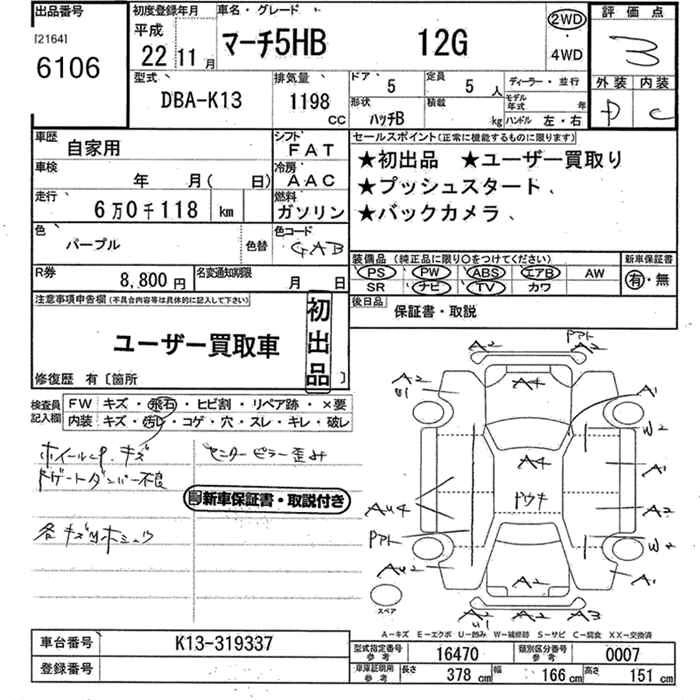 出品番号
[2164]
6106
初度登録年月
平成
22 11 月
車名・グレード
マーチ5HB 12G
2WD
・
4WD
評価点
3
外装 内装
D C
型式
DBA-K13
排気量
1198
CC
ドア 5
定員 5 人
ディーラー・並行
形状 ハッチB
積載 kg
モデル年式 年
ハンドル 左・右
車歴
自家用
シフト
FAT
車検
年 月( 日)
冷房
AAC
走行
6万0千118 km
燃料
ガソリン
色
パープル
色替
色コード
GAB
R券
8,800円
名変通知期限
月 日
セールスポイント(正常に機能するものに限ります)
★初出品 ★ユーザー買取り
★プッシュスタート、
★バックカメラ、
装備品(純正品に限り○をつけてください)
PS PW ABS エアB AW
SR ナビ TV カワ
新車保証書
有・無
後日品
保証書・取説
注意事項申告欄(不具合内容等は具体的に記入して下さい)
ユーザー買取車
初出品
修復歴 有〔箇所 〕
検査員記入欄
FW キズ・飛石・ヒビ割・リペア跡・×要
内装 キズ・汚レ・コゲ・穴・スレ・キレ・破レ
ホイールcap.キズ
ドゲートダンパー不良
各キズ凹ホシュウ
センターピラー歪み
新車保証書・取説付き
A2
Pアト
A2
A4
A2
U1
A1
W2
A4
A1
ドウキ
AU4
A2
Pアト
W2
AU2
A2
A1
スペア
A2
U1
A2
A3
A-キズ E-エクボ U-凹み W-補修跡 S-サビ C-腐食 XX-交換済
車台番号
K13-319337
登録番号
型式指定番号
参考
16470
類別区分番号
参考
0007
車庫証明用
参考
長さ 378 cm
幅 166 cm
高さ 151 cm